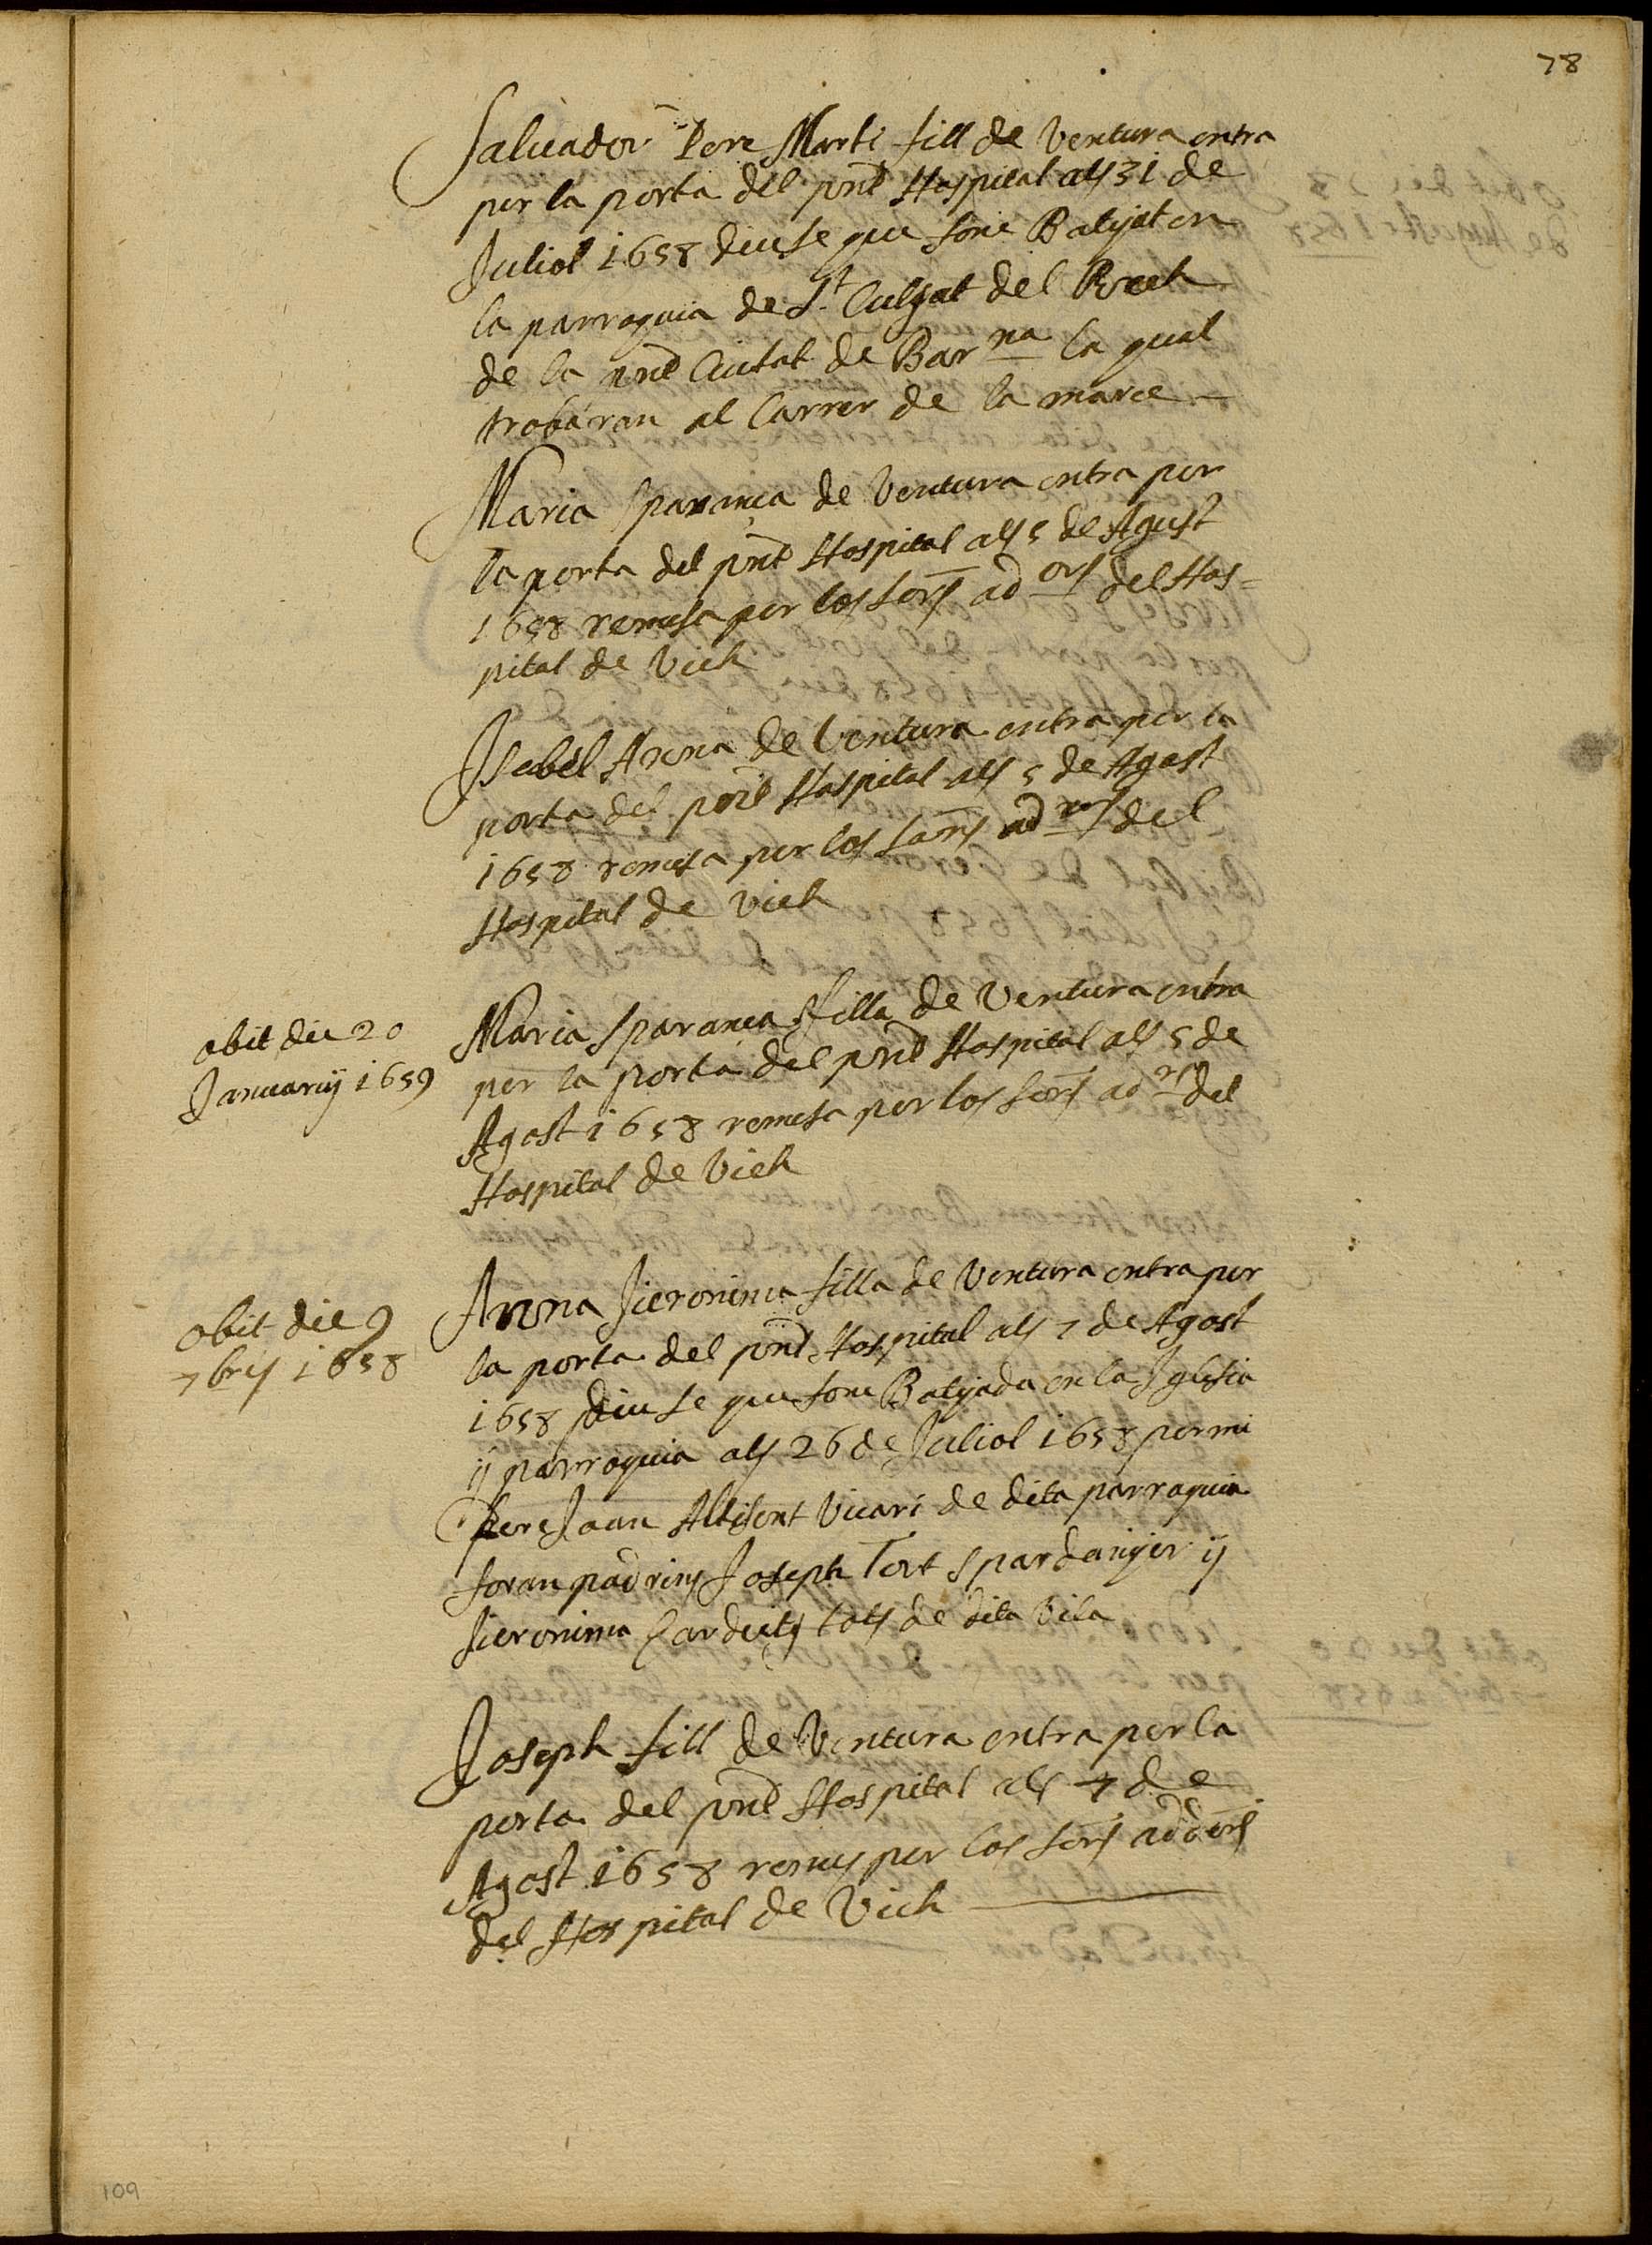 78
Salvador Pere Marti fill de Ventura entra
per la porta del pnt Hospital als 31 de
Juliol 1658 diuse que fonc Batyat en
la parroquia de St. Culgat del Rech
de la pnt Ciutat de Barna la qual
trobaran al Carrer de la marce
Maria Sparança de Ventura entra per
la porta del pnt Hospital als 5 de Agust
1658 remesa per los Sors ador del Hos=
pital de Vich
Isabel Anna de Ventura entra per la
porta del pnt Hospital als 5 de Agost
1658 remesa per los Sors adrs del
Hospital de Vich
obit die 20
Januarij 1659
Maria Sparança filla de Ventura entra
per la porta del pnt Hospital als 5 de
Agost 1658 remesa per los Sors adrs del
Hospital de Vich
obit die 9
7bris 1658
Anna Jieronima filla de Ventura entra per
la porta del pnt Hospital als 7 de Agost
1658 diuse que fonc Batyada en la Iglesia
ij parroquia als 26 de Juliol 1658 per mi
Pere Joan Altisent Vicari de dita parroquia
foran padrins Joseph Tort Spardanyer ij
Jieronima tots de dita Vila
Joseph fill de Ventura entra per la
porta del pnt Hospital als 7 de
Agost 1658 remes per los Sors addors
del Hospital de Vich
109